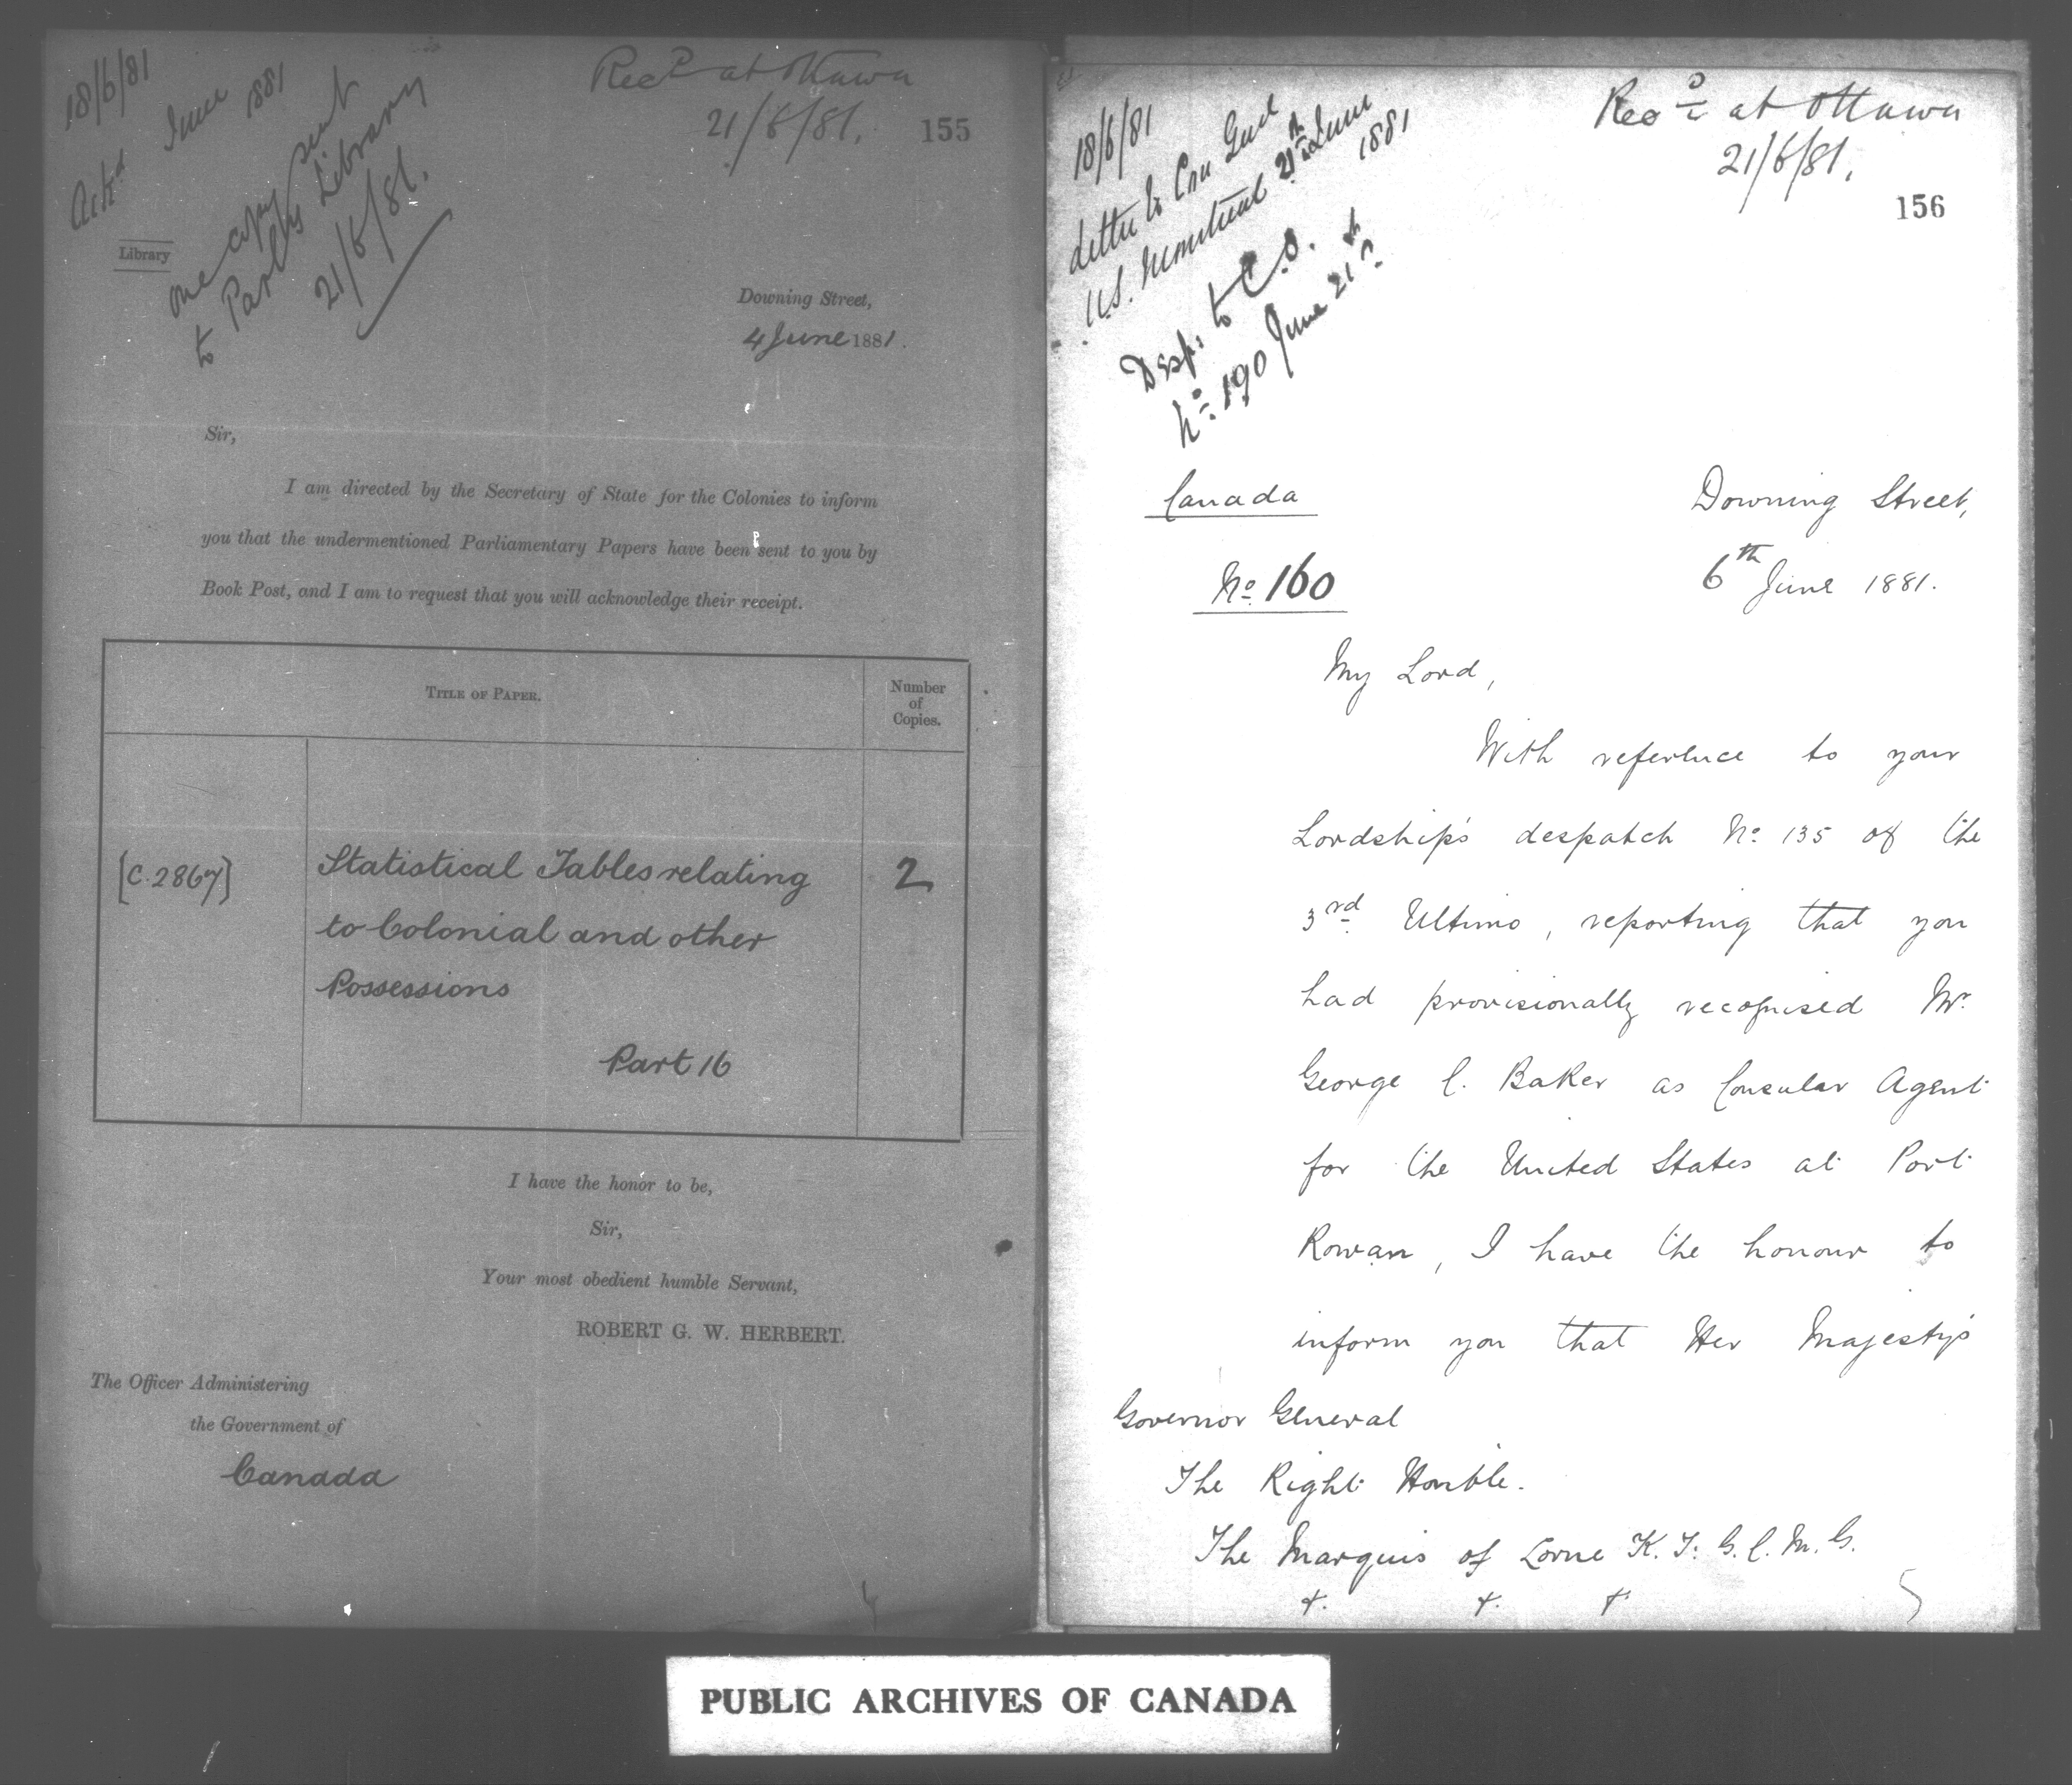 18/6/81
Ackd June 1881
one copy sent
to Parlty Library
21/6/81.
Recd at Ottawa
21/6/81.
155
Library
Downing Street,
4 June 1881.
Sir,
I am directed by the Secretary of State for the Colonies to inform
you that the undermentioned Parliamentary Papers have been sent to you by
Book Post, and I am to request that you will acknowledge their receipt.
TITLE OF PAPER.
Number
of
Copies.
[C. 2867]
Statistical Tables relating
to Colonial and other
Possessions
Part 16
2
I have the honor to be,
Sir,
Your most obedient humble Servant,
ROBERT G. W. HERBERT.
The Officer Administering
the Government of
Canada
18/6/81
Letter to Con Genl
U.S. Montreal 21st June
1881
Desp: to C.O.
No. 190 June 21st
Recd at Ottawa
21/6/81.
156
Canada
No. 160
Downing Street,
6th June 1881.
My Lord,
With reference to your
Lordship's despatch No. 135 of the
3rd Ultimo, reporting that you
had provisionally recognised Mr.
George C. Baker as Consular Agent
for the United States at Port
Rowan, I have the honour to
inform you that Her Majesty's
Governor General
The Right Honble.
The Marquis of Lorne K.T. G.C.M.G.
PUBLIC ARCHIVES OF CANADA